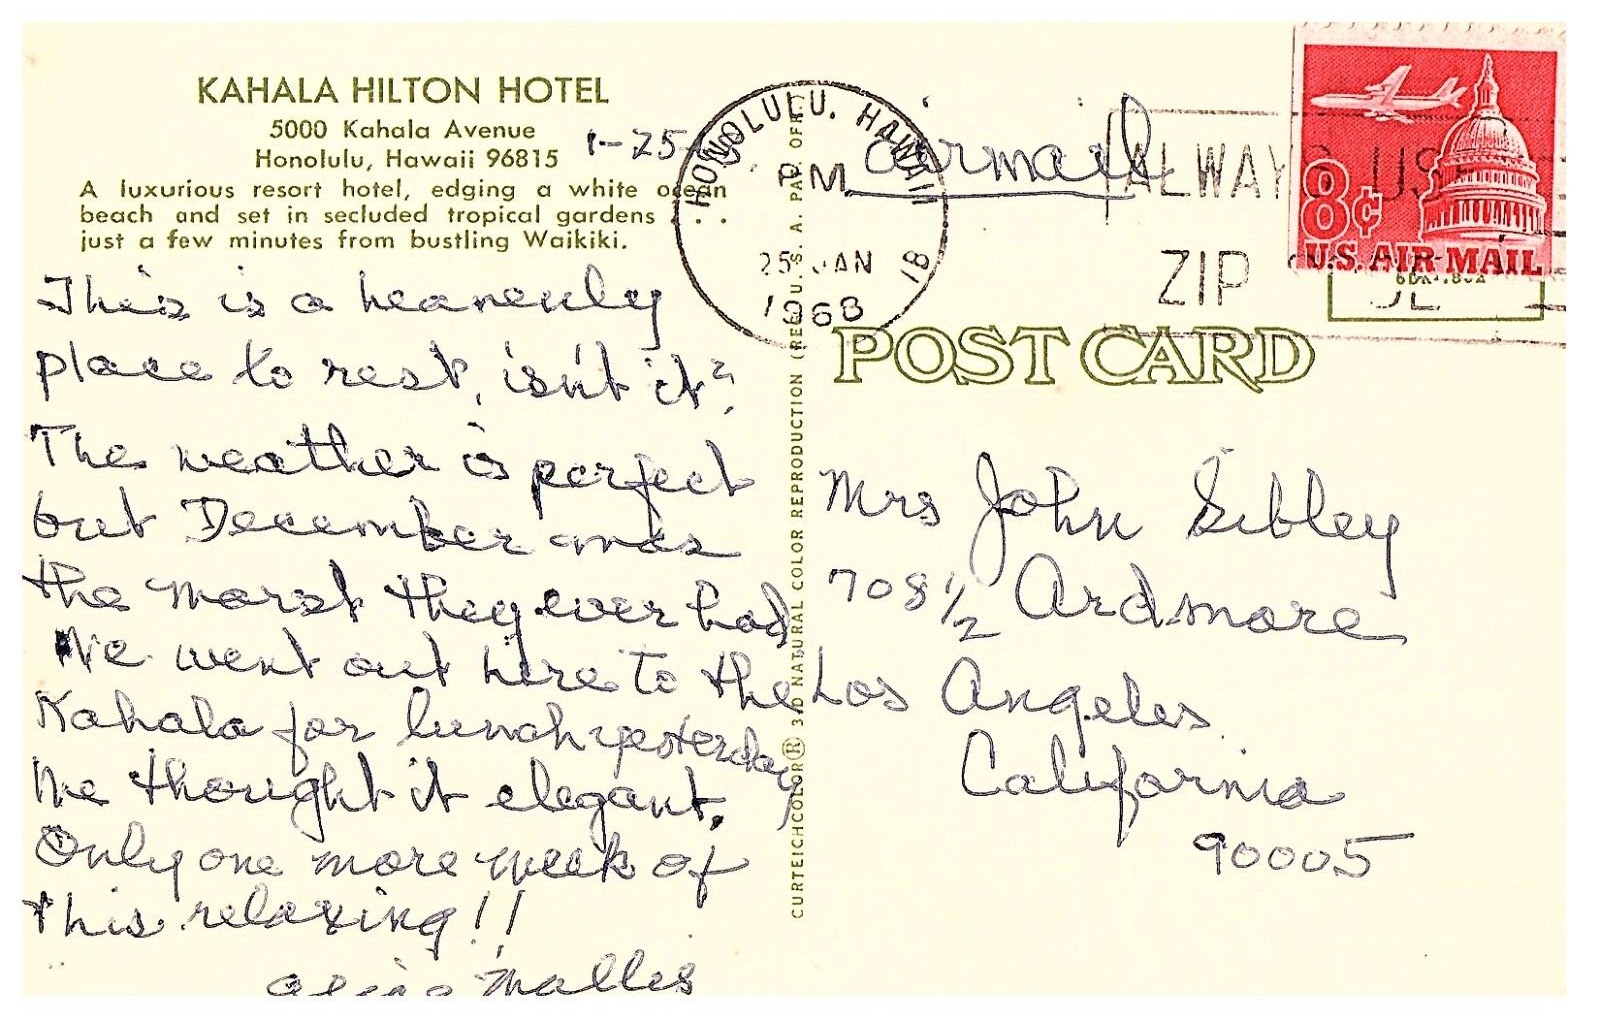 KAHALA HILTON HOTEL
5000 Kahala Avenue
Honolulu, Hawaii 96815
A luxurious resort hotel, edging a white ocean
beach and set in secluded tropical gardens . . .
just a few minutes from bustling Waikiki.
1-25-
This is a heavenly
place to rest, isn't it?
The weather is perfect
but December was
the worst they ever had
We went out here to the
Kahala for lunch yesterday
We thought it elegant.
Only one more week of
this relaxing!!
Mallis
CURTEICHCOLOR® 3-D NATURAL COLOR REPRODUCTION (REG. U.S.A. PAT. OFF.)
HONOLULU, HAWAII
PM
25 JAN
1968
18
airmail
ALWAYS USE
ZIP
8¢
U.S. AIR MAIL
POST CARD
Mrs John Sibley
708 1/2 Ardmore
Los Angeles
California
90005